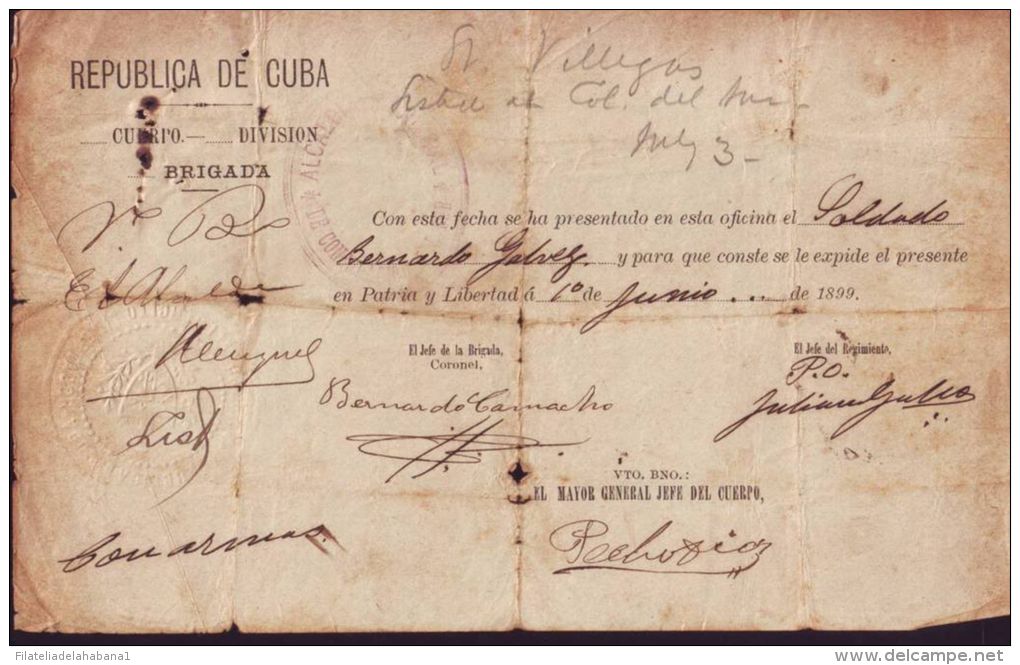 REPUBLICA DE CUBA
CUERPO.— DIVISION
BRIGADA
Villegas
Col. del
3-
ALCAL
DE COR
Vº Bº
El Alcalde
Con esta fecha se ha presentado en esta oficina el Soldado
Bernardo Galvez y para que conste se le expide el presente
en Patria y Libertad á 1º de Junio de 1899.
El Jefe de la Brigada,
Coronel,
Bernardo Camacho
El Jefe del Regimiento,
P.O.
Julian
VTO. BNO.:
EL MAYOR GENERAL JEFE DEL CUERPO,
Pedro Diaz
Con armas.
Filateliadelahabana1
delcampe.net